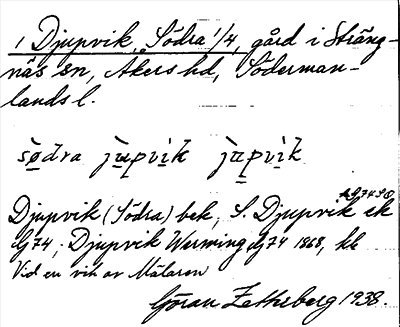 1 Djupvik, Södra 1/4, gård i Sträng-
näs sn, Åkers hd, Söderman-
lands l.
sø̀dra jùpvìk jùpvìk
Djupvik (Södra) bek, S. Djupvik ek
LG 74, Djupvik Werming 1868, hk
Vid en vik av Mälaren
Göran Zetterberg 1938.